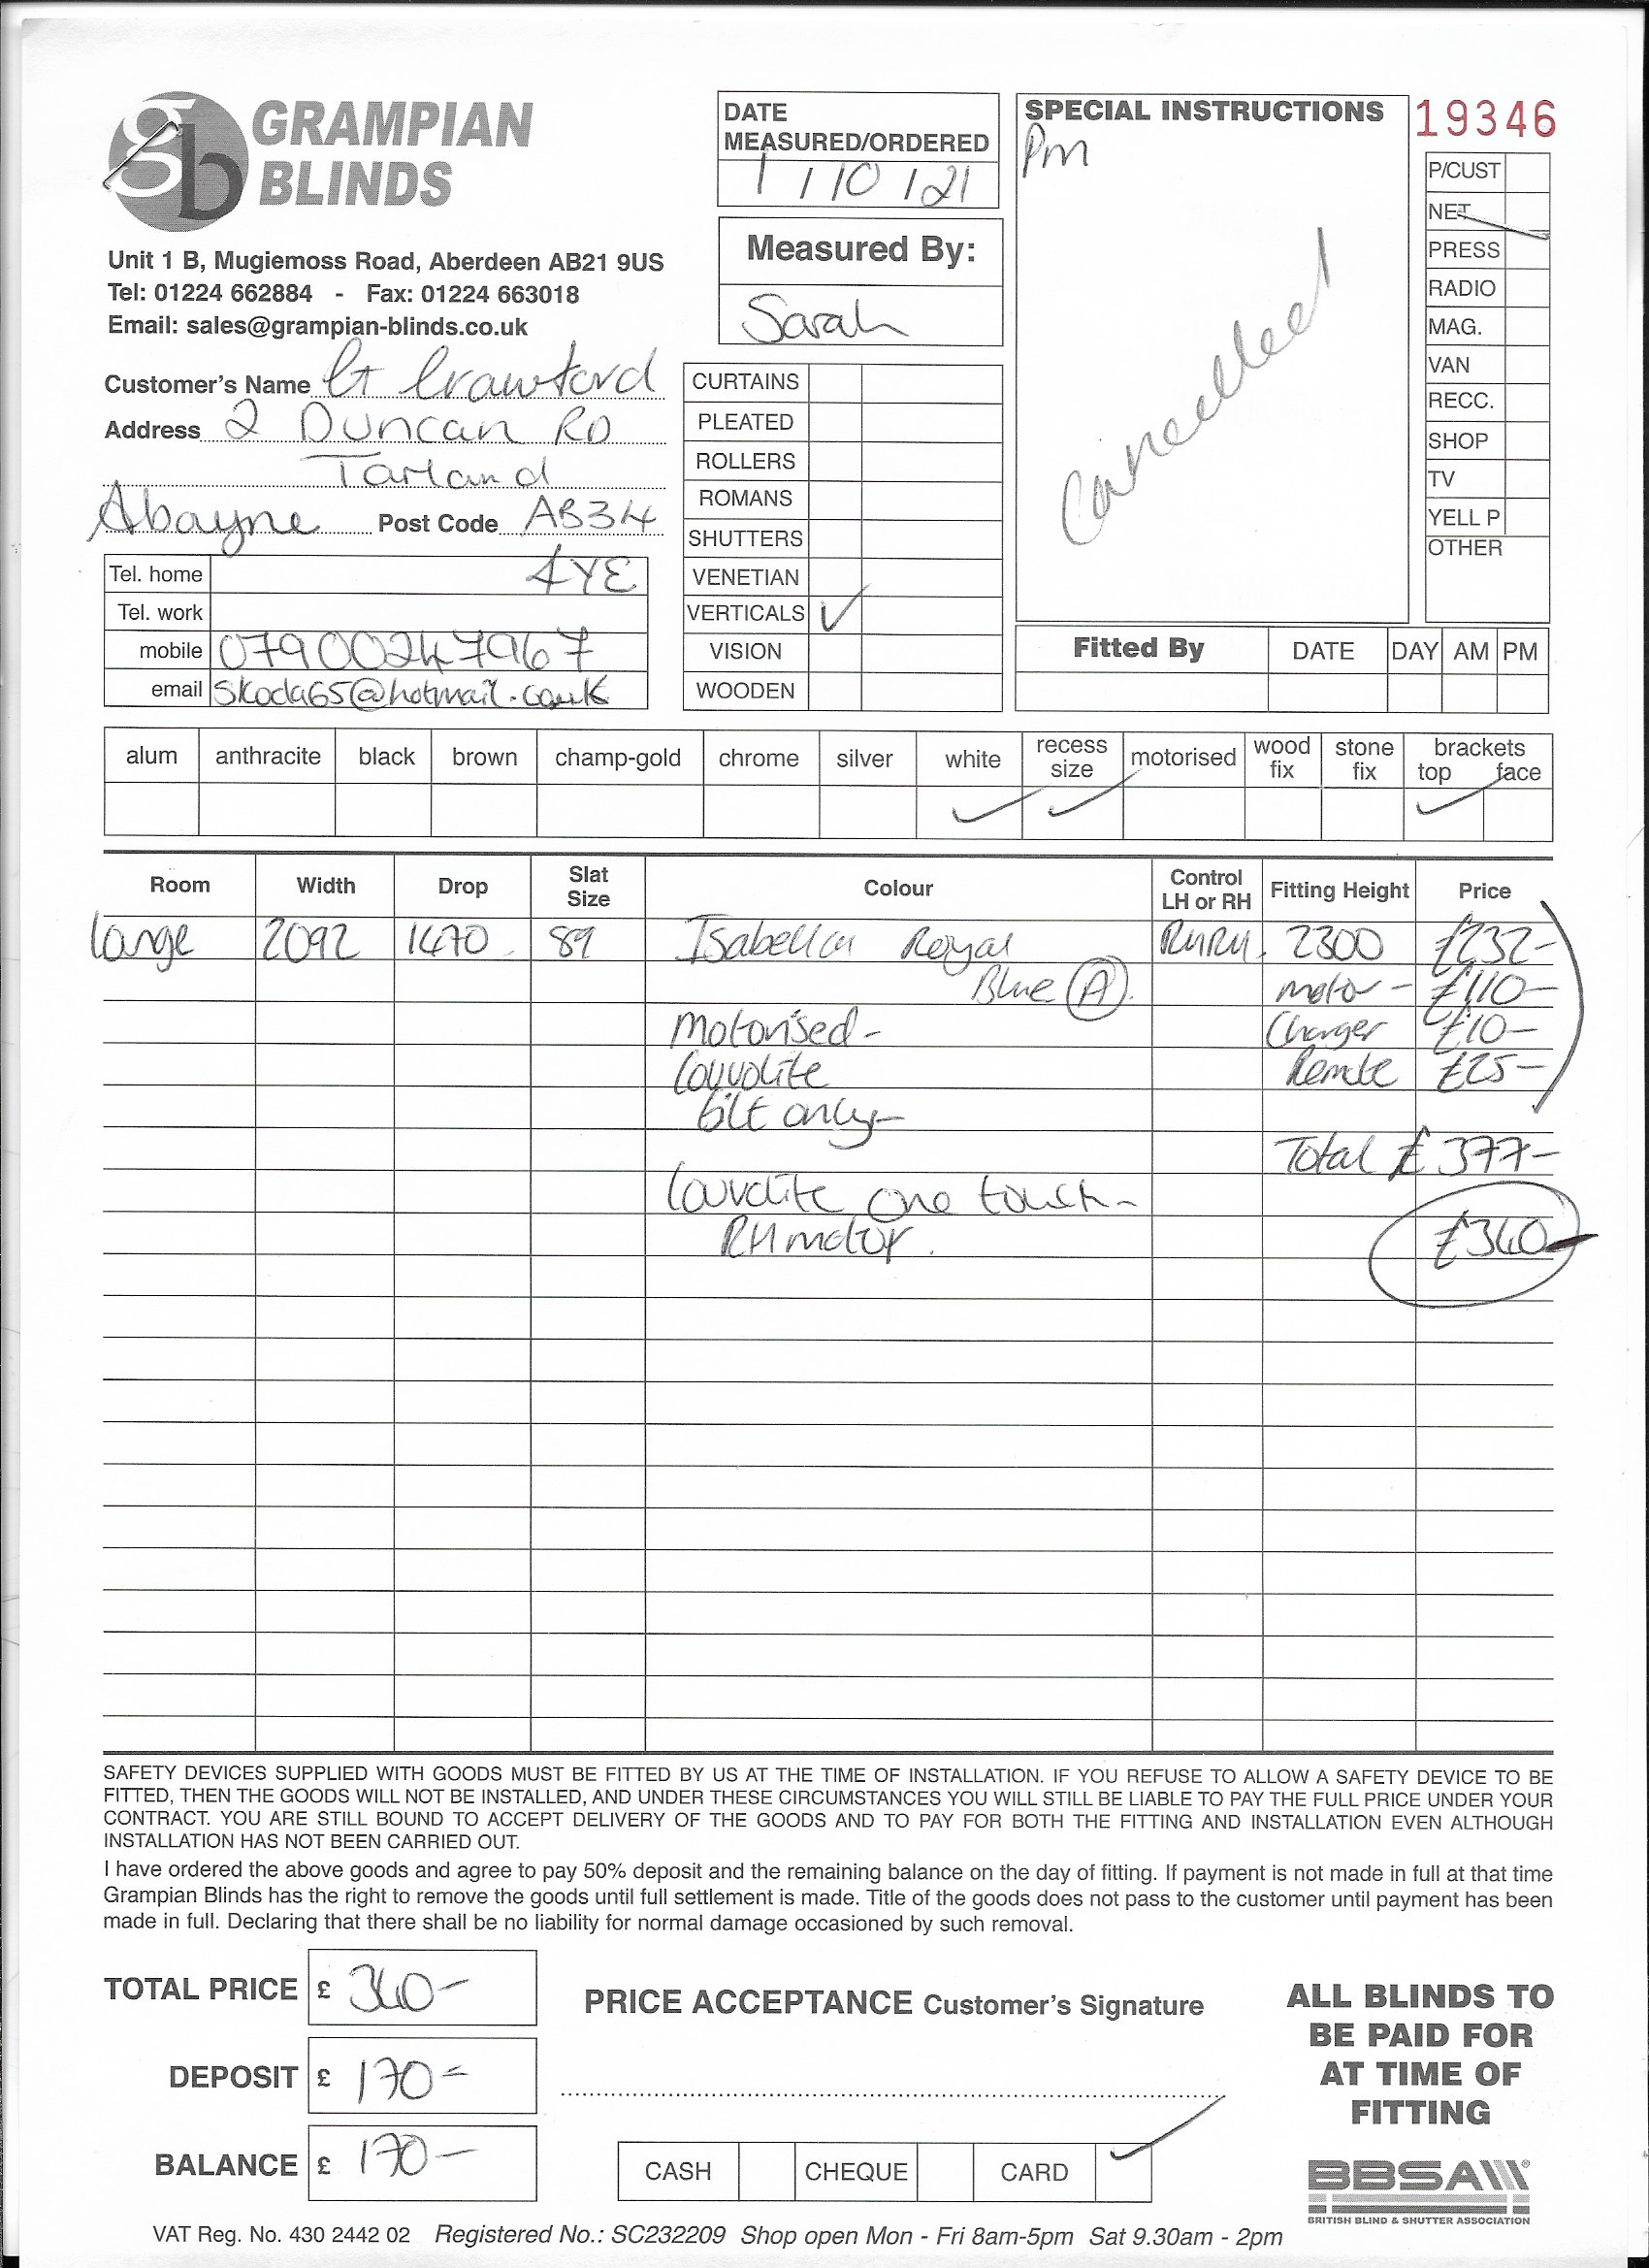 gb GRAMPIAN
BLINDS
Unit 1 B, Mugiemoss Road, Aberdeen AB21 9US
Tel: 01224 662884 - Fax: 01224 663018
Email: sales@grampian-blinds.co.uk
Customer's Name G Crawford
Address 2 Duncan RD
Tarland
Aboyne Post Code AB34
4YE
Tel. home
Tel. work
mobile 07900247967
email Skoda65@hotmail.co.uk
DATE
MEASURED/ORDERED
1/10/21
Measured By:
Sarah
CURTAINS
PLEATED
ROLLERS
ROMANS
SHUTTERS
VENETIAN
VERTICALS ✓
VISION
WOODEN
SPECIAL INSTRUCTIONS
Pm
Cancelled
19346
P/CUST
NET
PRESS
RADIO
MAG.
VAN
RECC.
SHOP
TV
YELL P
OTHER
Fitted By DATE DAY AM PM
alum anthracite black brown champ-gold chrome silver white recess size motorised wood fix stone fix brackets top face
✓ ✓ ✓
Room Width Drop Slat Size Colour Control LH or RH Fitting Height Price
Lounge 2092 1470 89 Isabella Royal RHRH. 2300 £232-
Blue (A). motor - £110-
Motorised- Charger £10-
Louvolite Remote £25-
tilt only-
Total £377-
Louvolite one touch-
RH motor. £340-
SAFETY DEVICES SUPPLIED WITH GOODS MUST BE FITTED BY US AT THE TIME OF INSTALLATION. IF YOU REFUSE TO ALLOW A SAFETY DEVICE TO BE
FITTED, THEN THE GOODS WILL NOT BE INSTALLED, AND UNDER THESE CIRCUMSTANCES YOU WILL STILL BE LIABLE TO PAY THE FULL PRICE UNDER YOUR
CONTRACT. YOU ARE STILL BOUND TO ACCEPT DELIVERY OF THE GOODS AND TO PAY FOR BOTH THE FITTING AND INSTALLATION EVEN ALTHOUGH
INSTALLATION HAS NOT BEEN CARRIED OUT.
I have ordered the above goods and agree to pay 50% deposit and the remaining balance on the day of fitting. If payment is not made in full at that time
Grampian Blinds has the right to remove the goods until full settlement is made. Title of the goods does not pass to the customer until payment has been
made in full. Declaring that there shall be no liability for normal damage occasioned by such removal.
TOTAL PRICE £ 340-
DEPOSIT £ 170-
BALANCE £ 170-
PRICE ACCEPTANCE Customer's Signature
CASH CHEQUE CARD ✓
ALL BLINDS TO
BE PAID FOR
AT TIME OF
FITTING
BBSA
BRITISH BLIND & SHUTTER ASSOCIATION
VAT Reg. No. 430 2442 02 Registered No.: SC232209 Shop open Mon - Fri 8am-5pm Sat 9.30am - 2pm